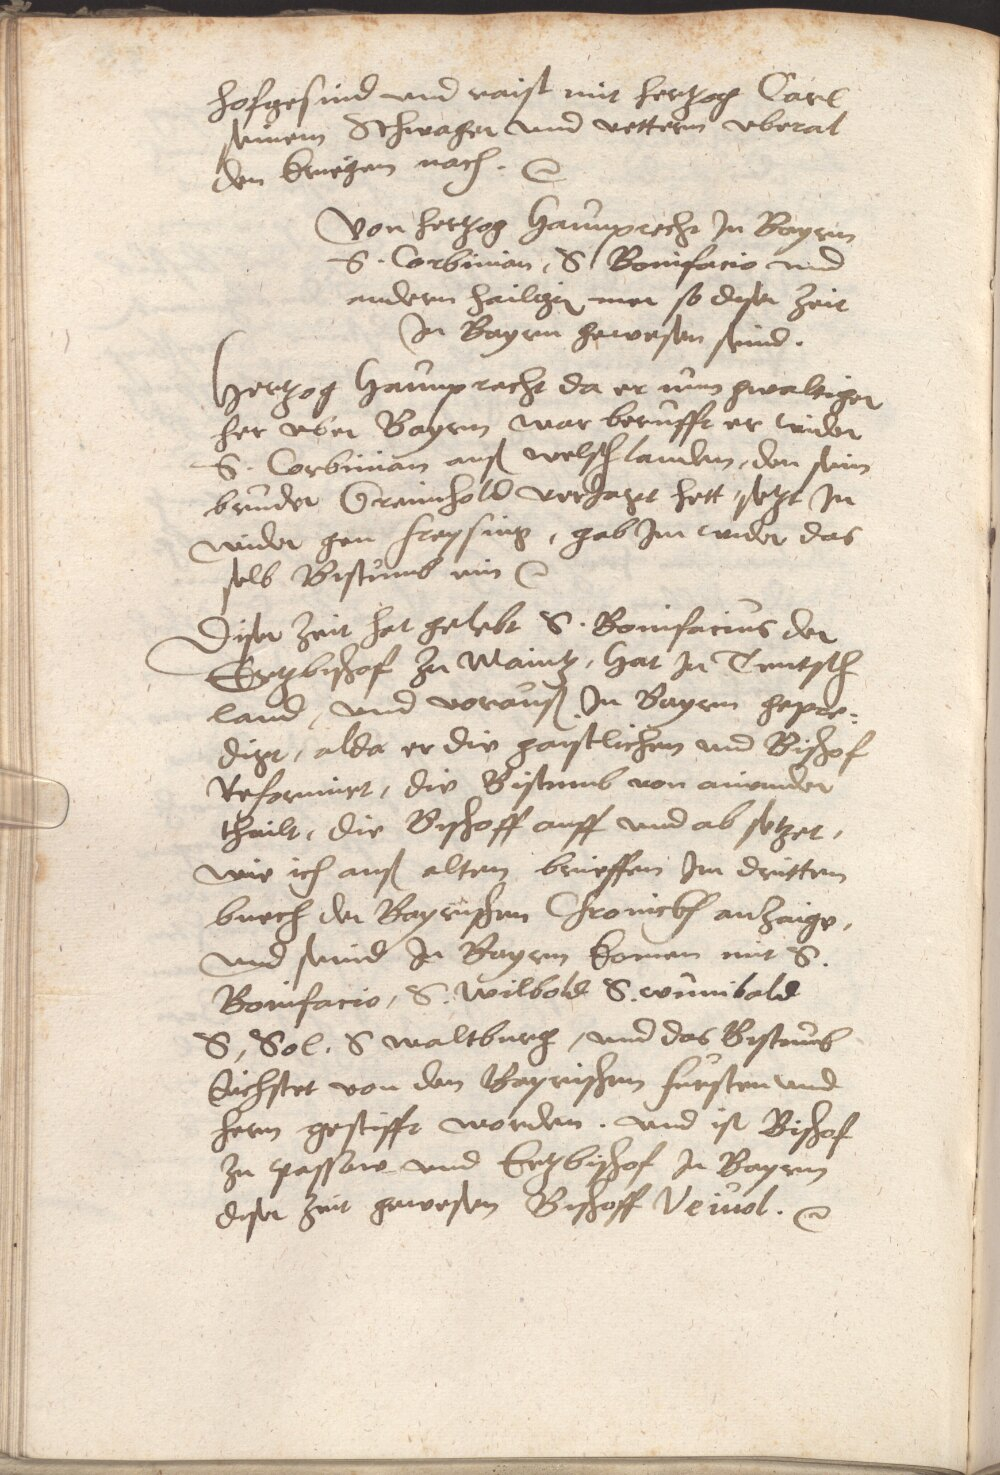 hofgesind vnd raist mit hertzog Carl
seinem Schwager vnd vettern vberal
den kriegen nach.
Von hertzog Haunprecht In Bayrn
S. Corbinian, S. Bonifacio vnd
andern hailigen mer so diser Zeit
In Bayrn gewesen seind.
Hertzog Haunprecht da er nun gwaltiger
her vber Bayrn war berufft er wider
S. Corbinian auß welschlanden, den sein
bruder Greimhold veriagt hett, setzt In
wider gen freysing, gab Im wider das
selb Bistumb ein
Diser Zeit hat gelebt S. Bonifacius der
Ertzbischof zu Maintz, hat In Teutsch
land, vnd vorauß In Bayrn gepre-
digt, alda er die gaystlichen vnd Bischof
Reformirt, die Bistumb von ainander
thailt, die Bischoff auff vnd ab setzet,
wie ich auß alten brieffen Im dritten
buech der Bayrischen Chronickh anzaige,
vnd seind In Bayrn komen mit S.
Bonifacio, S. Wilbold S. wunibald
S, Sol. S waltburg, vnd das Bistumb
Eichstet von den Bayrischen fursten vnd
hern gestifft worden. vnd ist Bischof
zu passaw vnd Ertzbischof In Bayrn
diser Zeit gewesen Bischoff Veiuol.